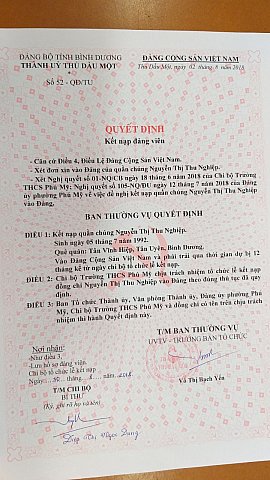 ĐẢNG BỘ TỈNH BÌNH DƯƠNG
THÀNH UỶ THỦ DẦU MỘT
*
Số 52 - QĐ/TU
ĐẢNG CỘNG SẢN VIỆT NAM
Thủ Dầu Một, ngày 02 tháng 8 năm 2018
QUYẾT ĐỊNH
Kết nạp đảng viên
- Căn cứ Điều 4, Điều Lệ Đảng Cộng Sản Việt Nam.
- Xét đơn xin vào Đảng của quần chúng Nguyễn Thị Thu Nghiệp.
- Xét Nghị quyết số 01-NQ/CB ngày 18 tháng 6 năm 2018 của Chi bộ Trường
THCS Phú Mỹ; Nghị quyết số 105-NQ/ĐU ngày 12 tháng 7 năm 2018 của Đảng
ủy phường Phú Mỹ về việc đề nghị kết nạp quần chúng Nguyễn Thị Thu Nghiệp
vào Đảng,
BAN THƯỜNG VỤ QUYẾT ĐỊNH
ĐIỀU 1: Kết nạp quần chúng Nguyễn Thị Thu Nghiệp.
Sinh ngày 05 tháng 7 năm 1992.
Quê quán: Tân Vĩnh Hiệp, Tân Uyên, Bình Dương.
Vào Đảng Cộng Sản Việt Nam và phải trải qua thời gian dự bị 12
tháng kể từ ngày chi bộ tổ chức lễ kết nạp.
ĐIỀU 2: Chi bộ Trường THCS Phú Mỹ chịu trách nhiệm tổ chức lễ kết nạp
đồng chí Nguyễn Thị Thu Nghiệp vào Đảng theo đúng thủ tục đã quy
định.
ĐIỀU 3: Ban Tổ chức Thành ủy, Văn phòng Thành ủy, Đảng ủy phường Phú
Mỹ, Chi bộ Trường THCS Phú Mỹ và đồng chí có tên trên chịu trách
nhiệm thi hành Quyết định này.
Nơi nhận:
-Như điều 3,
-Lưu hồ sơ đảng viên.
Chi bộ tổ chức lễ kết nạp
T/M CHI BỘ
BÍ THƯ
(Ký, ghi rõ họ và tên)
Diệp Thị Ngọc Dung
T/M BAN THƯỜNG VỤ
UVTV - TRƯỞNG BAN TỔ CHỨC
Võ Thị Bạch Yến